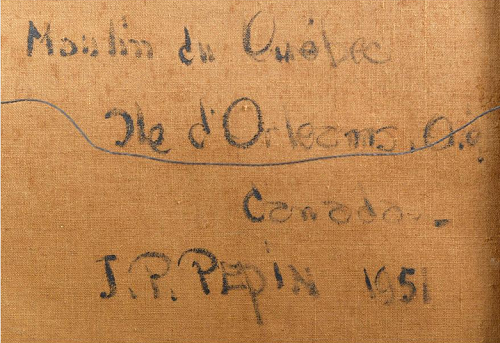 Moulin du Québec
Ile d'Orleans. Q.é
Canada.-
J.P. PEPIN 1951